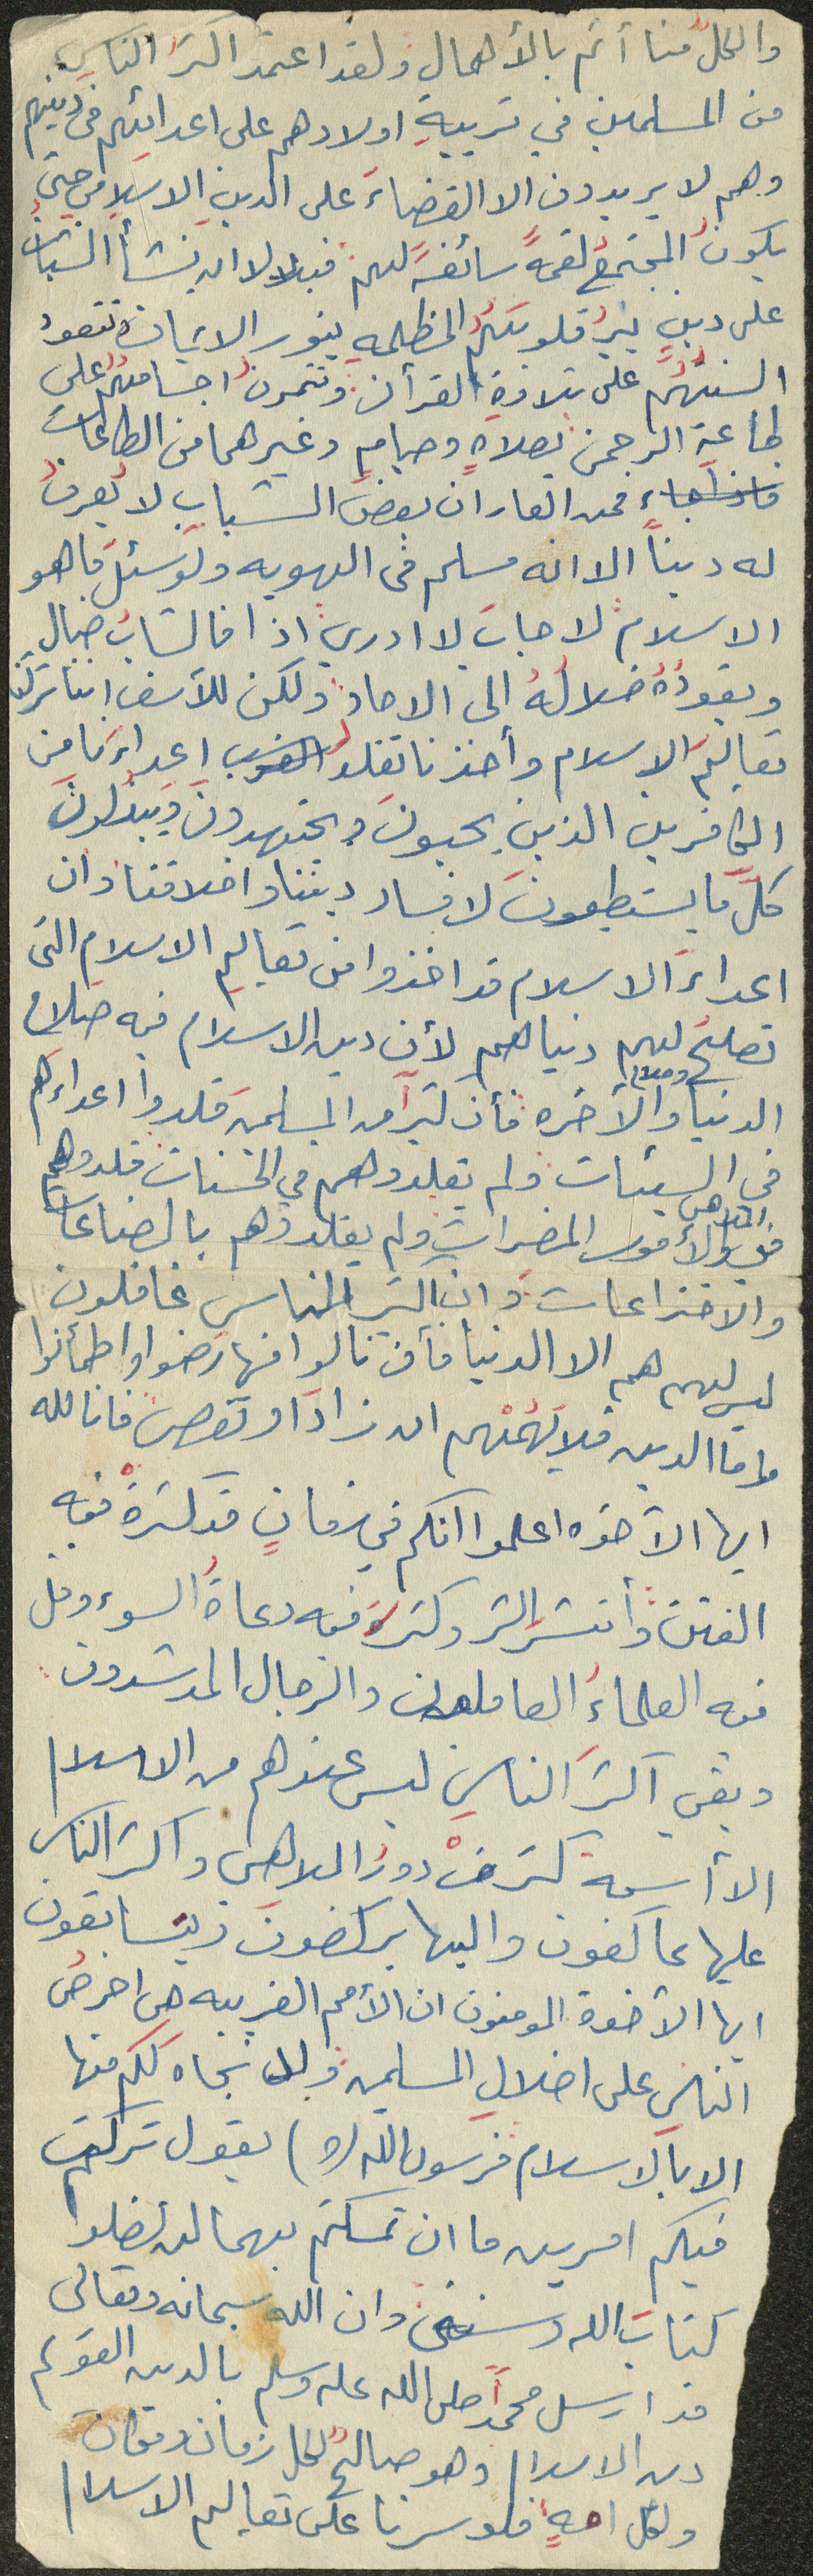 والكلّ منا أثم بالأهمال ولقد اعتمد اكثر الناس
من المسلمين في تربيةِ اولادهم على اعدائهم في دينهم
وهم لا يريدون الا القضاءَ على الدينِ الاسلامي حتى
يكونُ المجتمعُ لقمةً سائغةً لهم فبلا لا ان ينشأ الشباب
على دينٍ ينيرُ قلوبَهُم المظلمه بنور الايمان وتتعود
السنتُهُم على تلاوةِ القرأن وتتمرنُ اجسامهُم على
طاعةِ الرحمن بصلاهٍ وصيامٍ وغيرهما من الطاعات
فمن العار ان بعضَ الشبابِ لا يُعرفُ
له ديناً الا انه مسلم في الهويه ولو سئلَ ما هو
الاسلامُ لاجابَ لا ادري اذا فالشابُ ضال
ويقودُهُ ضلالُهُ الى الالحاد ولكن للأسف اننا تركنا
تعاليمَ الاسلام وأخذنا نقلد اعداءَنا من
الكافرين الذين يحبونَ ويجتهدونَ ويبذلونَ
كلَّ ما يستطيعونَ لافساد ديننا واخلاقنا وان
اعداءَ الاسلام قد اخذوا من تعاليمِ الاسلام التي
تصلحُ لهم دنياهم لأن دين الاسلام فيه صلاح
الدنيا وصلاح والأخره فأن كثيراً من المسلمين قلدوا اعداءهم
في السيئات ولم يقلدوهم في الحسنات قلدوهم
في الملاهي والأمور المضرات ولم يقلدوهم بالصناعات
والاختراعات وان اكثر الناس غافلون
ليس لهم هم الا الدنيا فأن نالوا منها رضوا واطمأنوا
واما الدين فلا يَهُمّهم ان زاد او نقص فانا لله
ايها الأخوه اعلموا انكم في زمانٍ قد كثرةْ فيه
الفتن وأنتشر الشر وكثرةَ فيه دعاةُ السوء وقل
فيه العلماءُ العاملون والرجال المرشدون
وبقي اكثرَ الناسِ ليس عندهم من الاسلام
الا أسمه كثرتْ دورُ الملاهي واكثر الناس
عليها عاكفون واليها يركضونَ ويتسابقون
ايها الأخوة المومنون ان الأمم الغربيه هي احرصُ
الناسِ على اضلالِ المسلمين ولا نجاه لكم منها
الا بالاسلام فرسول الله (ص) يقول تركت
فيكم امرين ما ان تمسكتم بهما لن تضلوا
كتاب الله وسنتي وان الله سبحانه وتعالى
قد ارسل محمداً صلى الله عليه وسلم بالدين القويم
دين الاسلام وهو صالحٌ لكل زمان ومكان
ولكل امةٍ فلو سرنا على تعاليم الاسلام